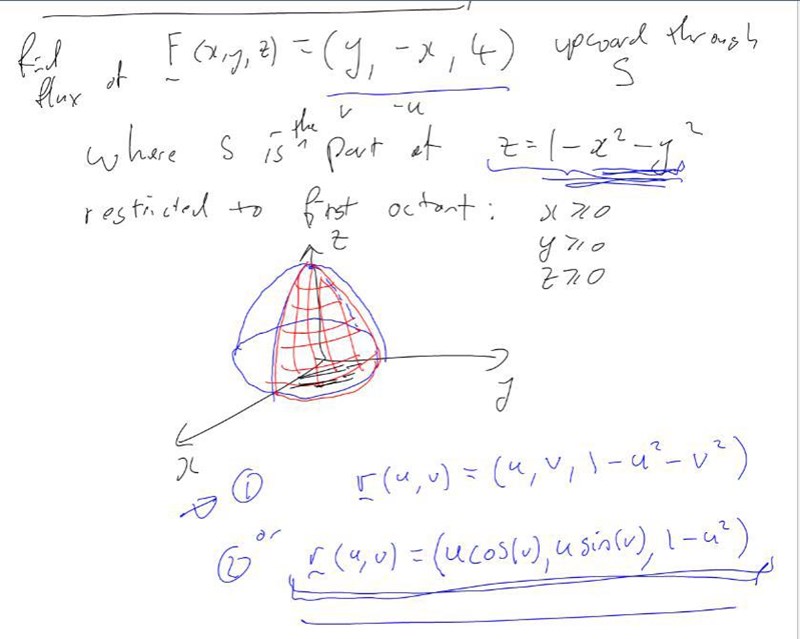 Find flux of F(x,y,z) = (y, -x, 4) upward through S
v -u
where S is the part of z = 1 - x² - y²
restricted to first octant: x ≥ 0
y ≥ 0
z ≥ 0
z
y
x
① r(u,v) = (u, v, 1 - u² - v²)
or
② r(u,v) = (u cos(v), u sin(v), 1 - u²)